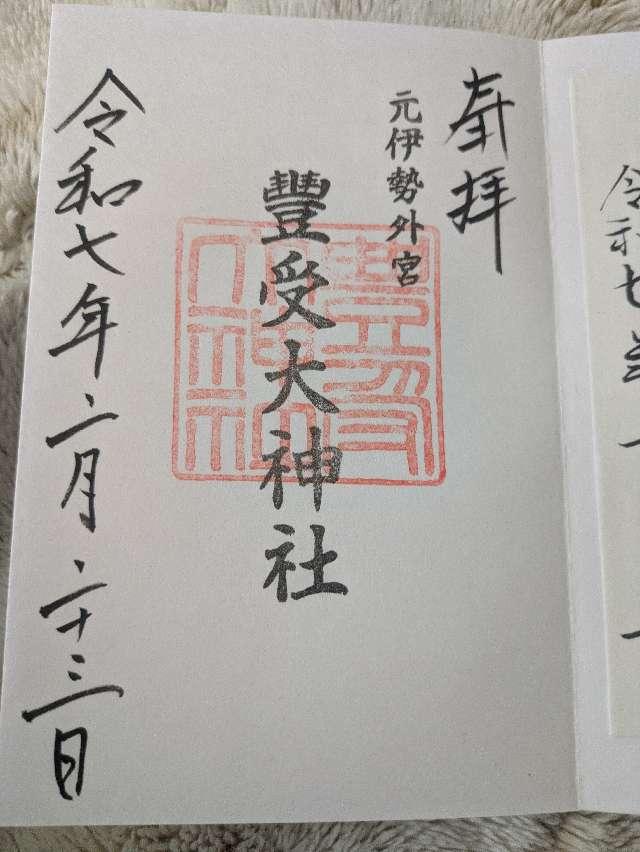 奉拝
元伊勢外宮
豐受大神社
令和七年二月二十三日
令和七年